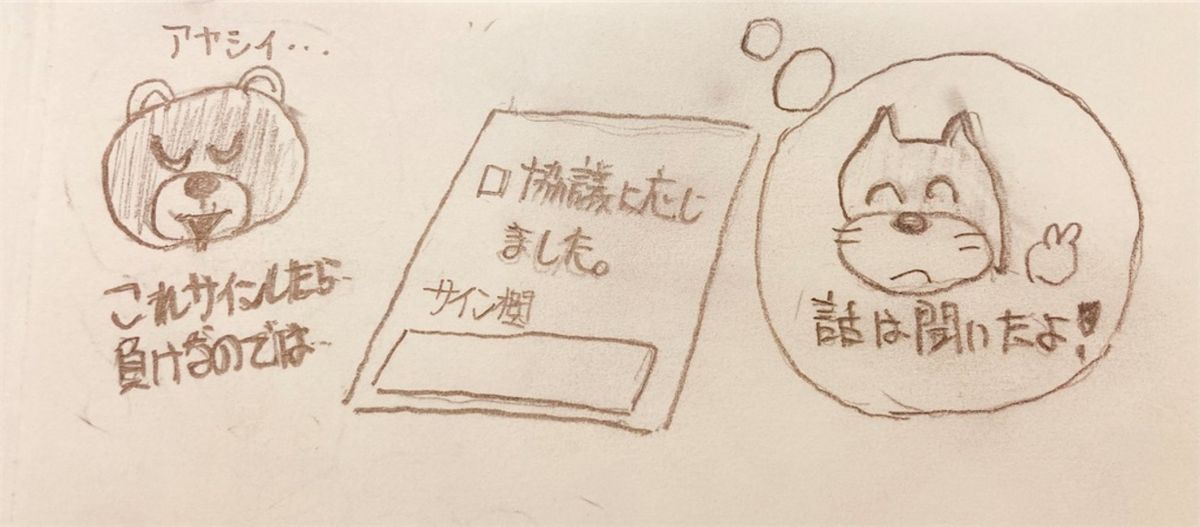 アヤシイ・・・
これサインしたら‥
負けなのでは‥
□協議に応じ
ました。
サイン欄
話は聞いたよ!